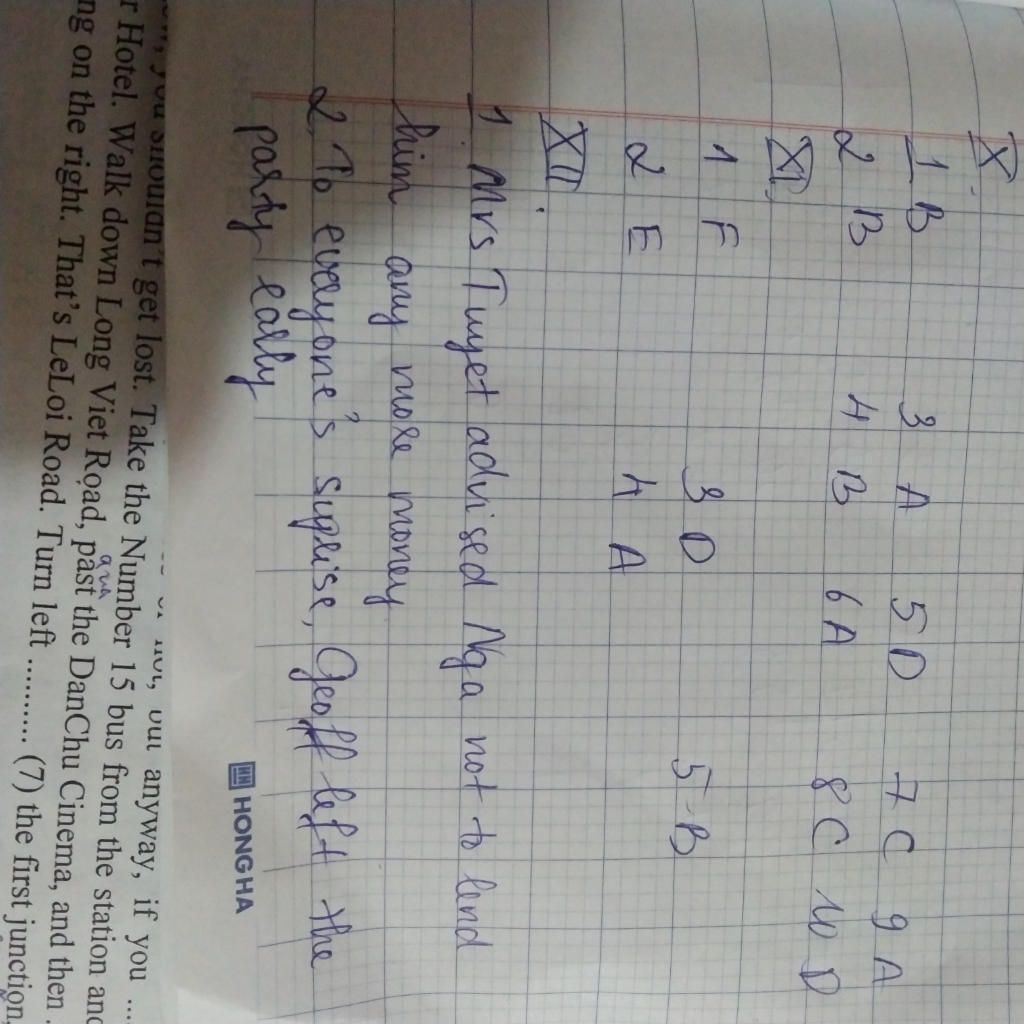 X.
1 B 3 A 5 D 7 C 9 A
2 B 4 B 6 A 8 C 10 D
XI,
1 F 3 D 5 - B
2 E 4 A
XII.
1 Mrs Tuyet advised Nga not to lend
him any more money
2, To everyone's suprise, Geoff left the
party early
HONG HA
you shouldn't get lost. Take the Number 15 bus from the station and
r Hotel. Walk down Long Viet Road, past the DanChu Cinema, and then
qua
ng on the right. That's LeLoi Road. Turn left .......... (7) the first junction,
but anyway, if you ....